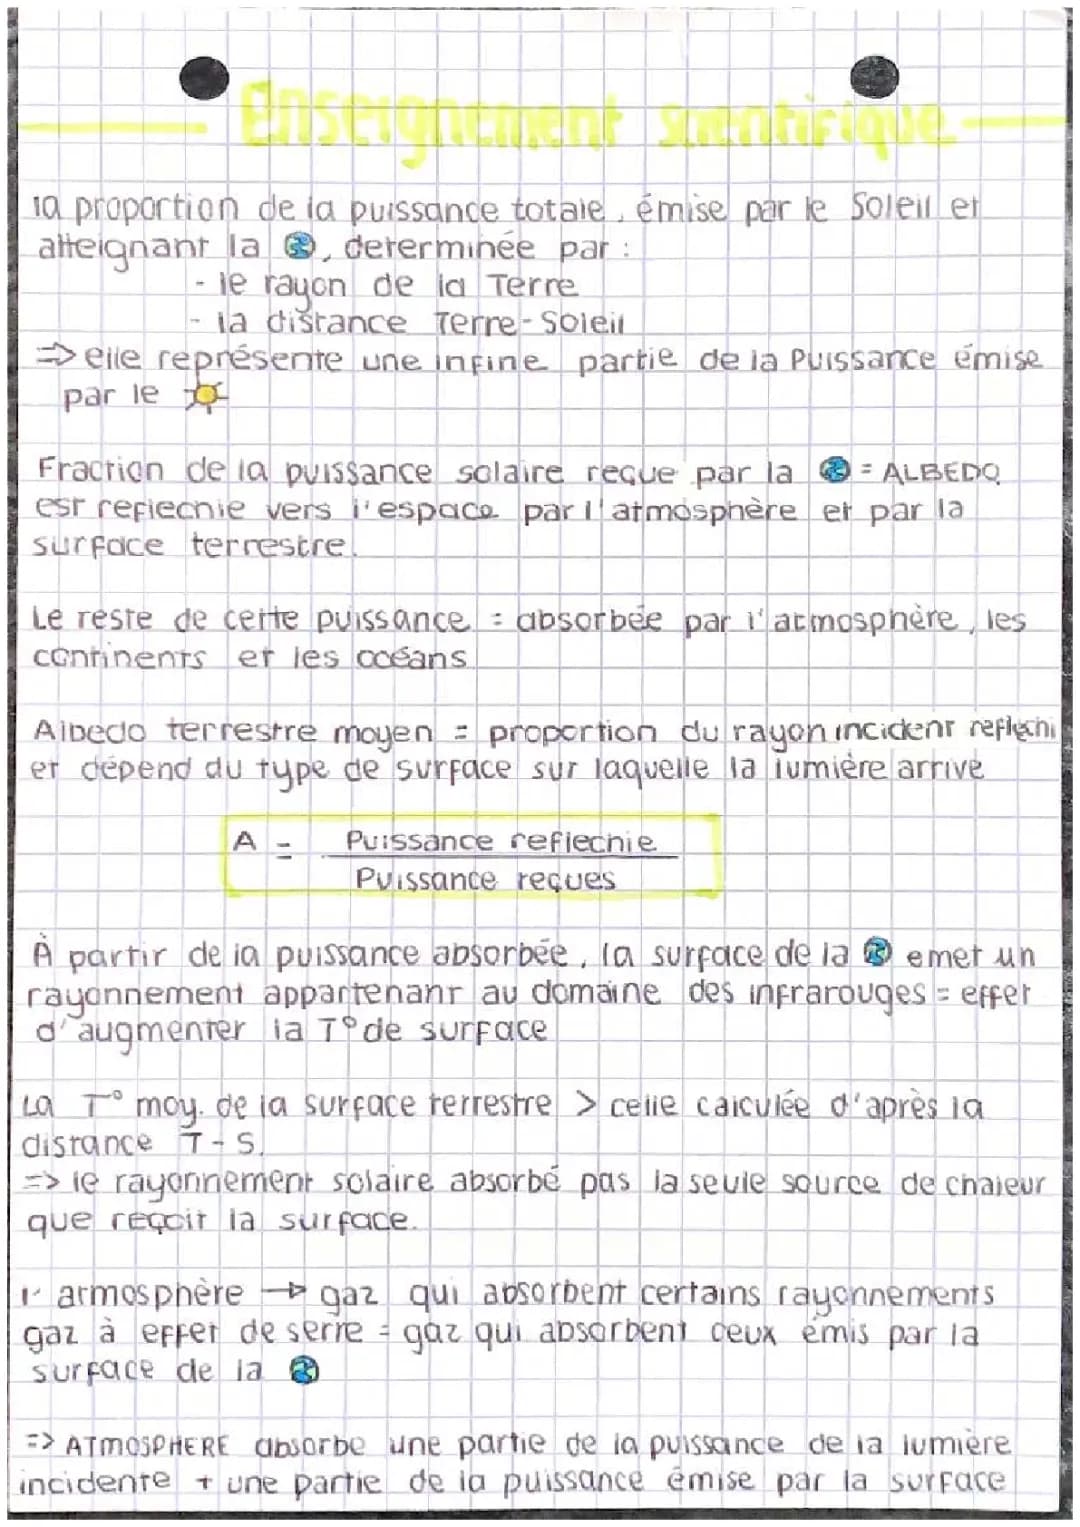 Enseignement scientifique
la proportion de la puissance totale, émise par le Soleil et
atteignant la 🌍, determinée par :
- le rayon de la Terre
- la distance Terre-Soleil
=> elle représente une infine partie de la Puissance émise
par le ☀
Fraction de la puissance solaire reçue par la 🌍 = ALBEDO
est reflechie vers l'espace par l'atmosphère et par la
surface terrestre.
Le reste de cette puissance = absorbée par l'atmosphère, les
continents et les océans
Albedo terrestre moyen = proportion du rayon incident reflechi
et dépend du type de surface sur laquelle la lumière arrive
A = Puissance reflechie
Puissance reçues
À partir de la puissance absorbée, la surface de la 🌍 emet un
rayonnement appartenant au domaine des infrarouges = effet
d'augmenter la T° de surface
La T° moy. de la surface terrestre > celle calculée d'après la
distance T-S.
=> le rayonnement solaire absorbé pas la seule source de chaleur
que reçoit la surface.
l'atmosphère → gaz qui absorbent certains rayonnements
gaz à effet de serre = gaz qui absorbent ceux émis par la
surface de la 🌍
=> ATMOSPHERE absorbe une partie de la puissance de la lumière
incidente + une partie de la puissance émise par la surface